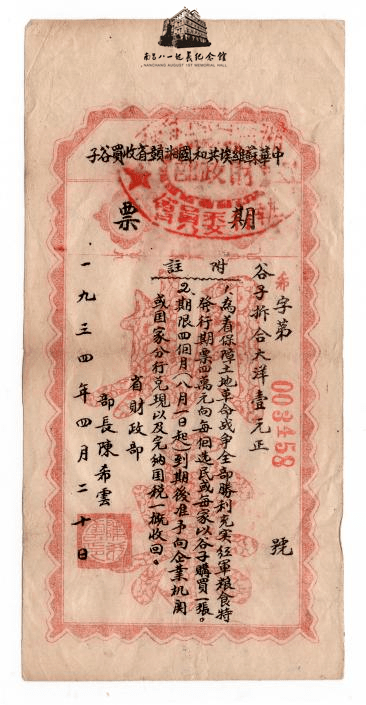 南昌八一起義紀念館
NANCHANG AUGUST 1ST MEMORIAL HALL
中華蘇維埃共和國湘贛省收買谷子
期票
希字第003458號
谷子拆合大洋壹元正
附註
1、為着保障土地革命战争全部勝利充实红軍粮食特
發行期票四萬元向每個选民或每家以谷子購買一張。
2、期限四個月(八月一日起)到期後准予向企業机関
或国家分行兑現以及完納国税一概收回。
省財政部
部長陳希雲
一九三四年四月二十日
財政部